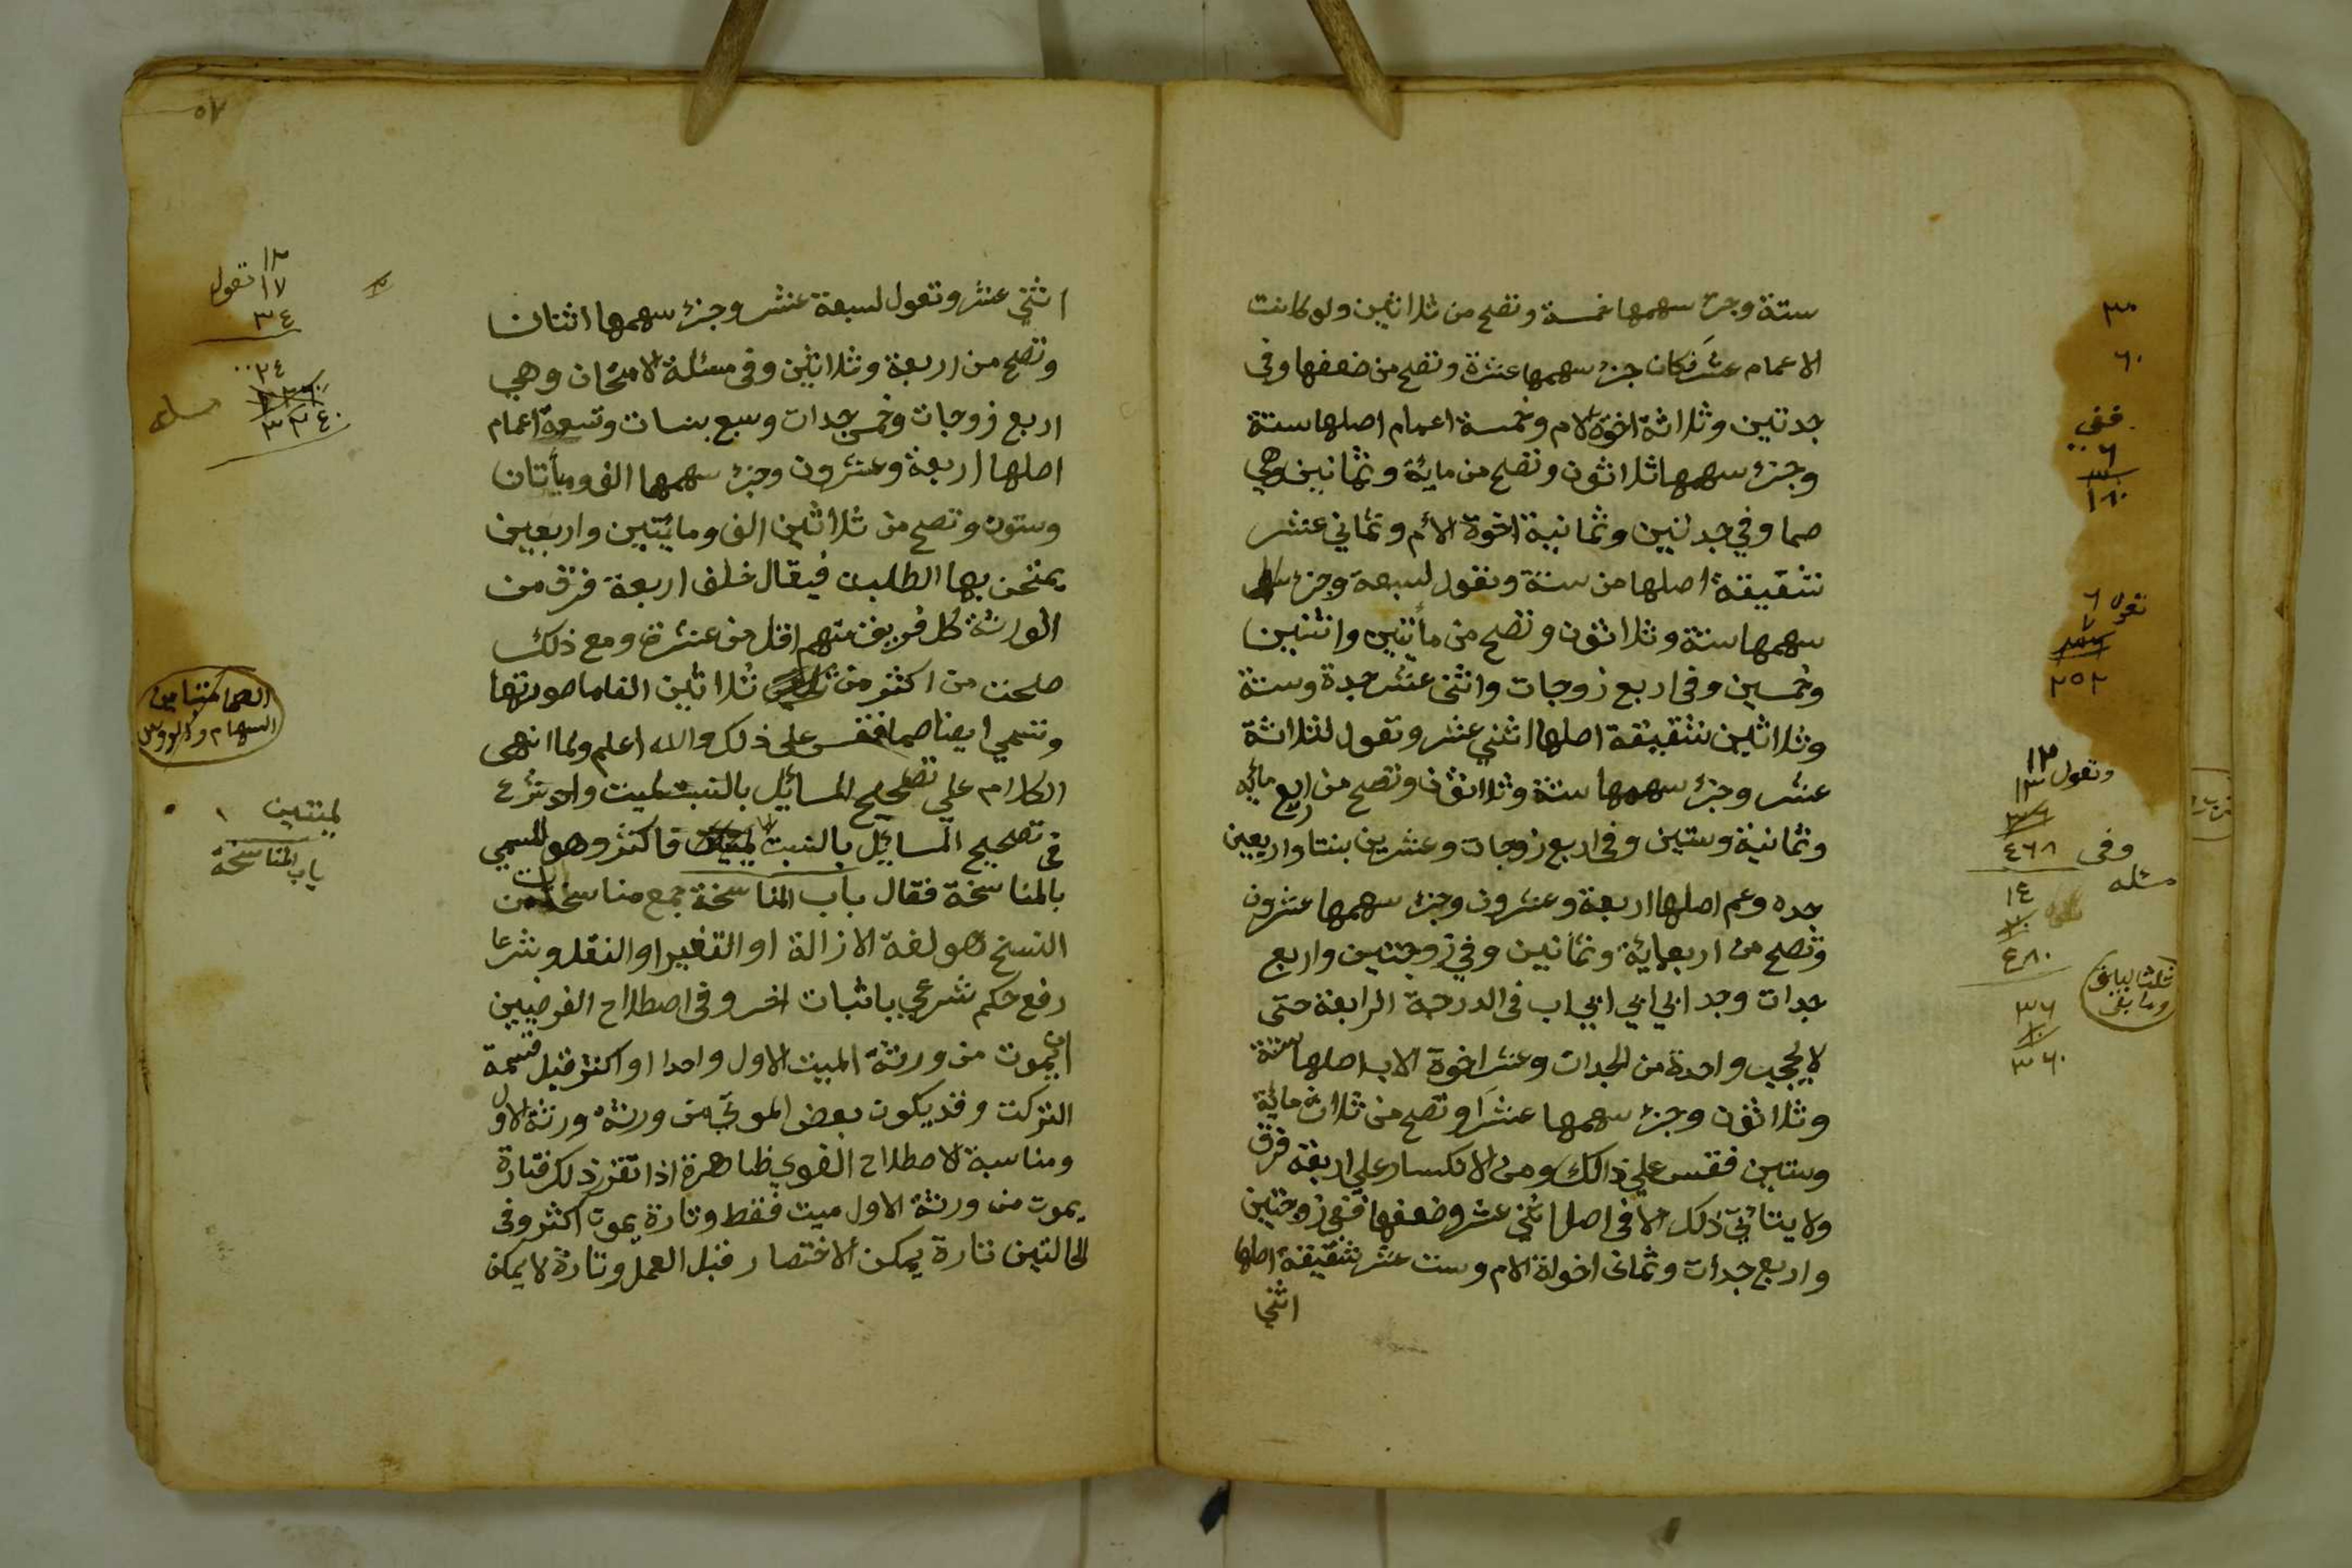 ستة وجزء سهمها خمسة وتصح من ثلاثين ولو كانت
الاعمام عشر فكان جزء سهمها عشرة وتصح من ضعفها وفى
جدتين وثلاثة اخوة لام وخمسة اعمام اصلها ستة
وجزء سهمها ثلاثون وتصح من ماية وثمانين وهي
صما وفي جدتين وثمانية اخوة الأم وثماني عشر
شقيقة اصلها من ستة وتعول لسبعة وجزء
سهمها ستة وثلاثون وتصح من مأتين واثنين
وخمسين وفى اربع زوجات واثنى عشر جدة وستة
وثلاثين شقيقة اصلها اثني عشر وتعول لثلاثة
عشر وجزء سهمها ستة وثلاثون وتصح من اربع مائه
وثمانية وستين وفى اربع زوجات وعشرين بنتا واربعين
جده وعم اصلها اربعة وعشرون وجزء سهمها عشرون
وتصح من اربعماية وثمانين وفي زوجتين واربع
جدات وجد ابي ابي ابي اب فى الدرجة الرابعة حتى
لا يحجب واحدة من الجدات وعشر اخوة الاب اصلها ستة
وثلاثون وجزء سهمها عشرا وتصح من ثلاث مائة
وستين فقس علي ذالك ومن الانكسار علي اربعة فرق
ولا يتاتي ذلك الا فى اصل اثني عشر وضعفها ففى زوجتين
واربع جدات وثمان اخوة الام وست عشر شقيقة اصلها
اثني
٣٠
٦٠
ففى
٦
٣٠
١٨٠
تعول ٦
٧
٣٦
٢٥٢
وتعول ١٢
١٣
٣٦
٤٦٨
وفى
مسئله
٢٤
٢٠
٤٨٠
ثلث الباقى
وما بقى
٣٦
١٠
٣٦٠
٥٧
اثني عشر وتعول لسبعة عشر وجزء سهمها اثنان
وتصح من اربعة وثلاثين وفى مسئلة الامتحان وهي
اربع زوجات وخمس جدات وسبع بنات وتسعة اعمام
اصلها اربعة وعشرون وجزء سهمها الف ومأتان
وستون وتصح من ثلاثين الف ومايتين واربعين
يمتحن بها الطلبة فيقال خلف اربعة فرق من
الورثة كل فريق منهم اقل من عشرة ومع ذلك
صلحت من اكثر من ثلاثين الفا ما صورتها
وتسمي ايضا صما فقس على ذلك والله اعلم ولما انهى
الكلام علي تصحيح المسائل بالنسبة لميت واحد شرع
فى تصحيح المسائل بالنسبة لميتين فاكثر وهو المسمي
بالمناسخة فقال باب المناسخة جمع مناسخة من
النسخ هو لغة الازالة او التغيير او النقل وشرعا
رفع حكم شرعي باثبات اخر وفى اصطلاح الفرضيين
ان يموت من ورثة الميت الاول واحدا او اكثر قبل قسمة
التركت وقد يكون بعض الموتي من ورثة ورثة الاول
ومناسبة الاصطلاح الغوي ظاهرة اذا تقرر ذلك فتارة
يموت من ورثة الاول ميت فقط وتارة يموت اكثر وفى
الحالتين تارة يمكن الاختصار قبل العمل وتارة لا يمكن
١٢
١٧ تعول
٢
٣٤
٢٤
١٢٦٠
٣٠٢٤٠
مسئله
الصما تباين
السهام والرووس
لميتين
باب المناسخة